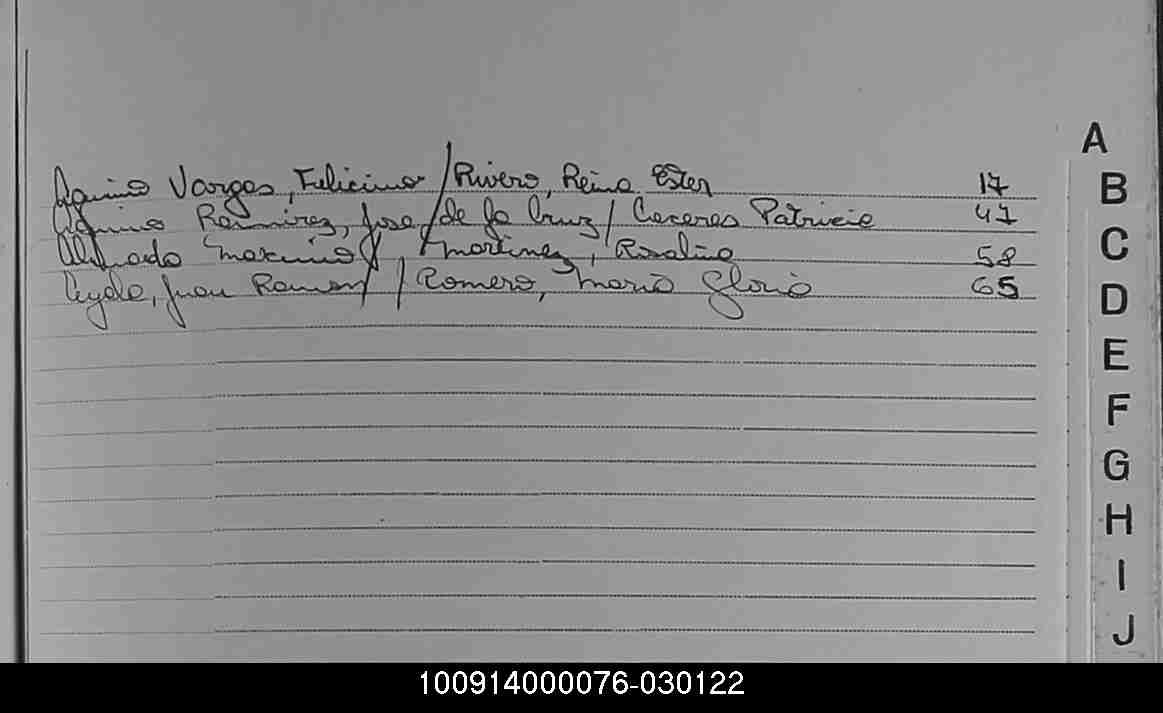 Aquino Vargas, Feliciano / Rivero, Reina Ester 17
Aquino Ramirez, Jose de la Cruz / Caceres Patricia 47
Maximo / Martinez, Rosalina 58
Ayala, Juan Ramon / Romero, Maria Gloria 65
A
B
C
D
E
F
G
H
I
J
100914000076-030122